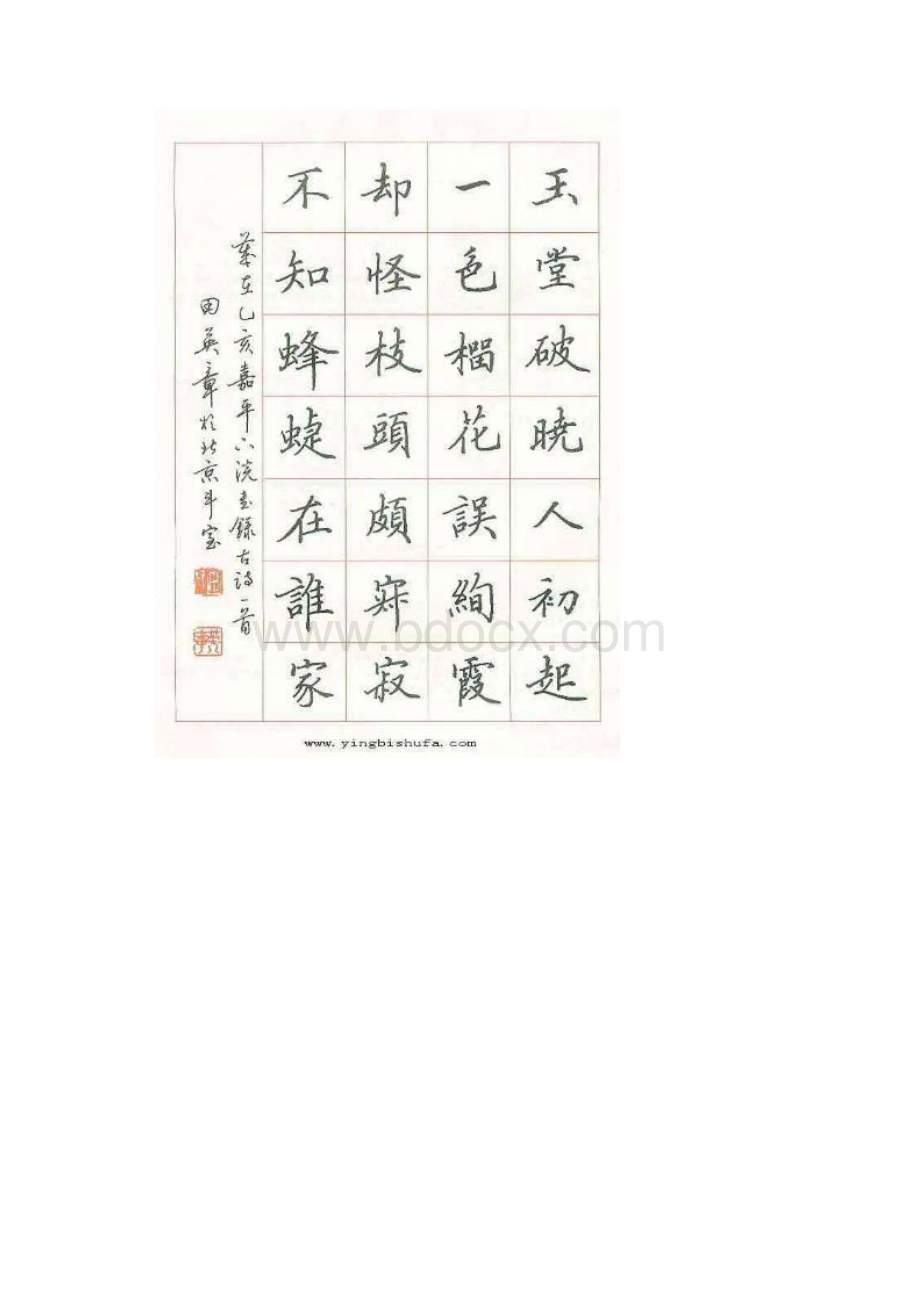 玉堂破曉人初起
一色榴花誤絢霞
却怪枝頭頗寂寂
不知蜂蜨在誰家
歲在乙亥嘉平下浣書録古詩一首
田英章於北京斗室
www.bdocx.com
www.yingbishufa.com